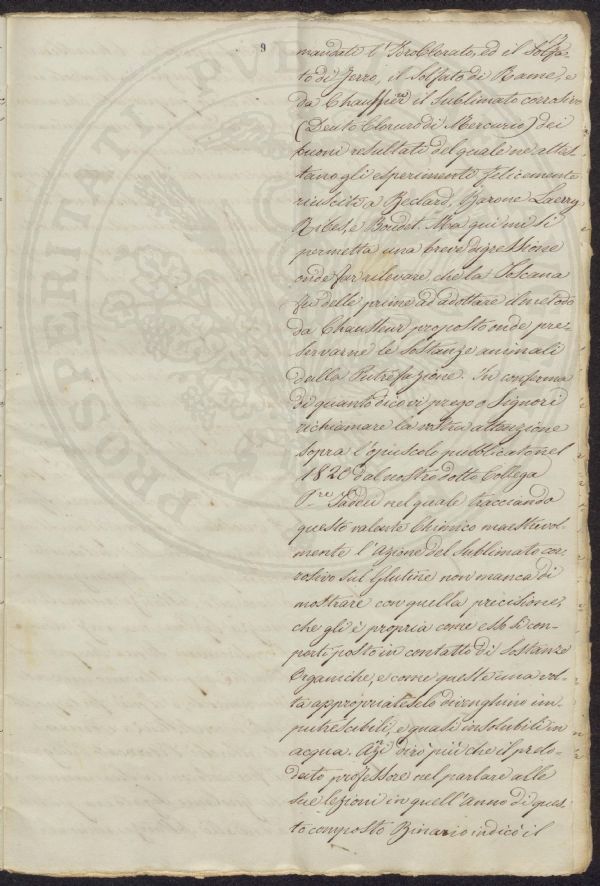 9
mandati l'Iroclorato, ed il Solfa-
to di Ferro, il Solfato di Rame, e
da Chaussier il Sublimato corrosivo
(Deuto Cloruro di Mercurio) dei
buoni resultati del quale ne attes-
tano gli esperimenti felicemente
riusciti a Beclard, Barone Laerry
Ribes, e Boudet. Ma qui mi si
permetta una breve digressione
onde far rilevare che la Toscana
fu delle prime ad adottare il metodo
da Chausseur proposto onde pre-
servarne le Sostanze animali
dalla Putrefazione. In conferma
di quanto dico vi prego o Signori
richiamare la vostra attenzione
sopra l'opuscolo pubblicato nel
1820 dal nostro dotto Collega
P.re Taddei nel quale tracciando
questo valente Chimico maestrevol-
mente l'azione del Sublimato cor-
rosivo sul Glutine non manca di
mostrare con quella precisione,
che gli è propria come esso si com-
porti posto in contatto di Sostanze
Organiche, e come queste una vol-
ta appropriateselo divenghino im-
putrescibili, e quasi insolubili in
acqua. Anzi dirò più che il prelo-
dato professore nel parlare alle
sue lezioni in quell'Anno di ques-
to composto Binario indicò il
PROSPERITATI PUBLICAE